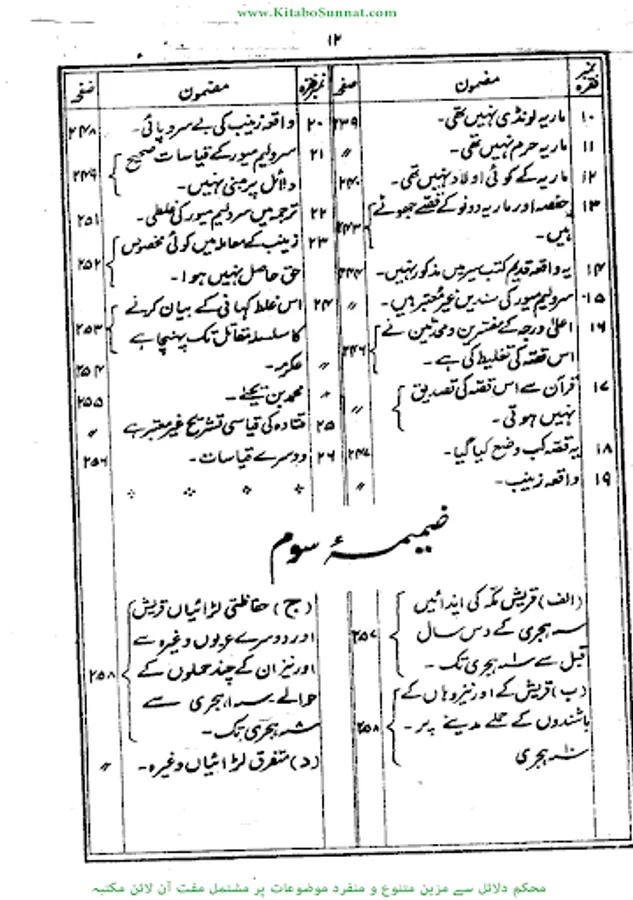 www.KitaboSunnat.com
۱۲
نمبر فقرہ مضمون صفحہ
۱۰ ماریہ لونڈی نہیں تھی۔ ۲۳۹
۱۱ ماریہ حرم نہیں تھی۔ 〃
۱۲ ماریہ کے کوئی اولاد نہیں تھی۔ ۲۴۰
۱۳ حفصہ اور ماریہ دونو کے قصّے جھوٹے
ہیں۔ ۲۴۳
۱۴ یہ واقعہ قدیم کتب سیر میں مذکور نہیں۔ ۲۴۴
۱۵ سرولیم میور کی سندیں غیر معتبر ہیں۔ 〃
۱۶ اعلیٰ درجہ کے مفسرین و محدثین نے
اس قصہ کی تغلیط کی ہے۔ ۲۴۶
۱۷ قرآن سے اس قصّہ کی تصدیق
نہیں ہوتی۔ 〃
۱۸ یہ قصّہ کب وضع کیا گیا۔ ۲۴۷
۱۹ واقعہ زینب۔ 〃
نمبر فقرہ مضمون صفحہ
۲۰ واقعہ زینب کی بے سروپائی۔ ۲۴۸
۲۱ سرولیم میور کے قیاسات صحیح
دلائل پر مبنی نہیں۔ ۲۴۹
۲۲ ترجمہ میں سرولیم میور کی غلطی۔ ۲۵۱
۲۳ زینب کے معاملہ میں کوئی مخصوص
حق حاصل نہیں ہوا۔ ۲۵۲
۲۴ اس غلط کہانی کے بیان کرنے
کا سلسلہ مقاتل تک پہنچا ہے ۲۵۳
〃 عکرمہ۔ ۲۵۴
〃 محمد بن یحییٰ۔ ۲۵۵
۲۵ قتادہ کی قیاسی تشریح غیر معتبر ہے 〃
۲۶ دوسرے قیاسات۔ ۲۵۶
ضمیمۂ سوم
(الف) قریش مکّہ کی ایذائیں
سنہ ہجری کے دس سال
قبل سے سنہ ۱ ہجری تک۔ ۲۵۷
(ب) قریش کے اور نیز وہاں کے
باشندوں کے حملے مدینے پر۔
سنہ ۱۰ ہجری ۲۵۸
(ج) حفاظتی لڑائیاں قریش
اور دوسرے عربوں وغیرہ سے
اور نیز ان کے چند حملوں کے
حوالے۔ سنہ ۱ ہجری سے
سنہ ہجری تک۔ ۲۵۸
(د) متفرق لڑائیاں وغیرہ۔ 〃
محکم دلائل سے مزین متنوع و منفرد موضوعات پر مشتمل مفت آن لائن مکتبہ